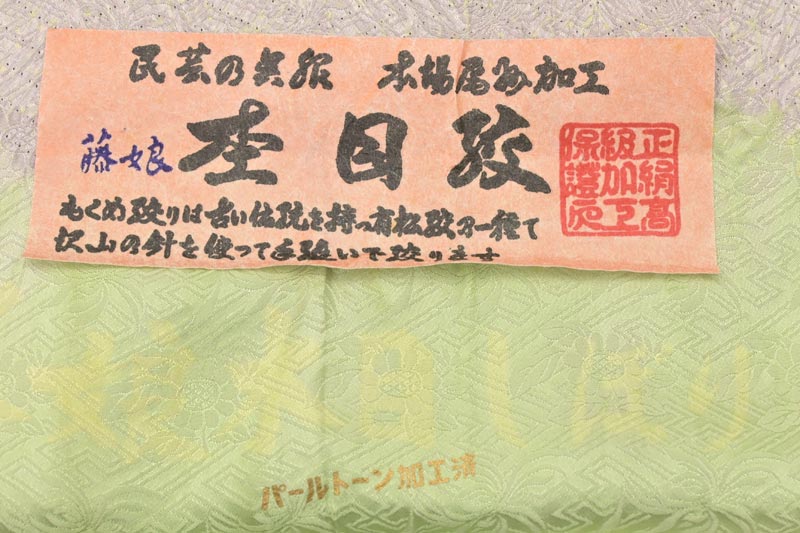 民芸の呉服 本場尾張加工
藤娘 杢目絞
もくめ絞りは古い伝統を持つ有松絞の一種で
沢山の針を使って手縫いで絞ります
正絹高級加工保證之
木目しぼり
パールトーン加工済